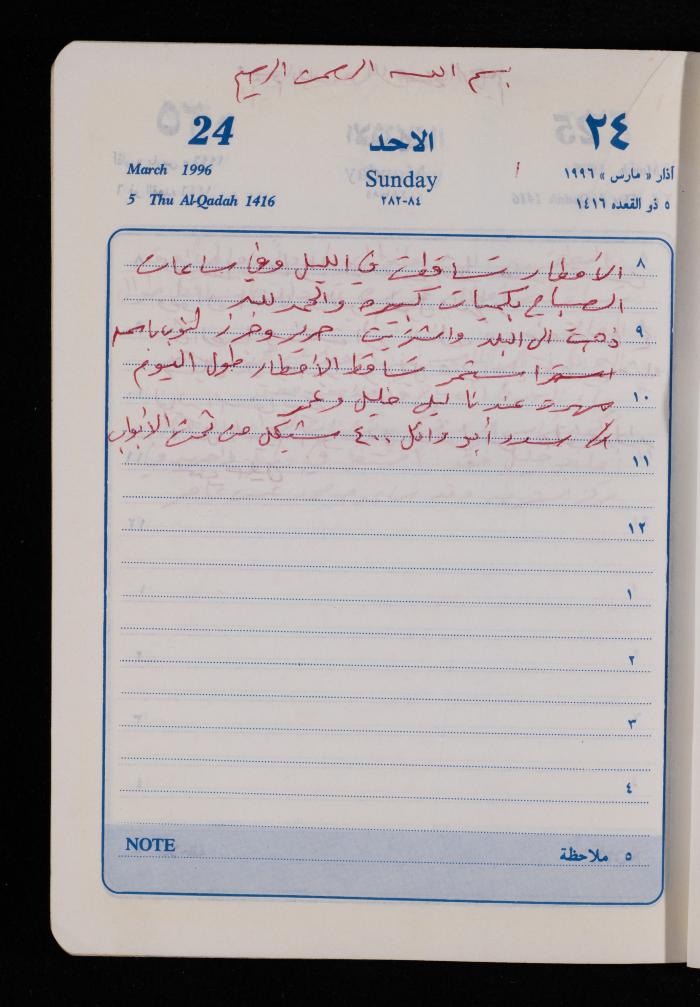 بسم الله الرحمن الرحيم
24 الاحد ٢٤
March 1996 Sunday آذار « مارس » ١٩٩٦
5 Thu Al-Qadah 1416 ٨٤-٢٨٢ ٥ ذو القعده ١٤١٦
٨ الأمطار تساقطت في الليل وفي ساعات
الصباح بكميات كبيره والحمد لله
٩ ذهبت الى البلد واشتريت حرير وخرز لثوب
استمر تساقط الأمطار طول اليوم
١٠ سهرت عندنا ليلى خليل وعمر
سدد أبو وائل ٤٠٠ شيكل من ثمن الأبواب
١١
١٢
١
٢
٣
٤
NOTE ٥ ملاحظة